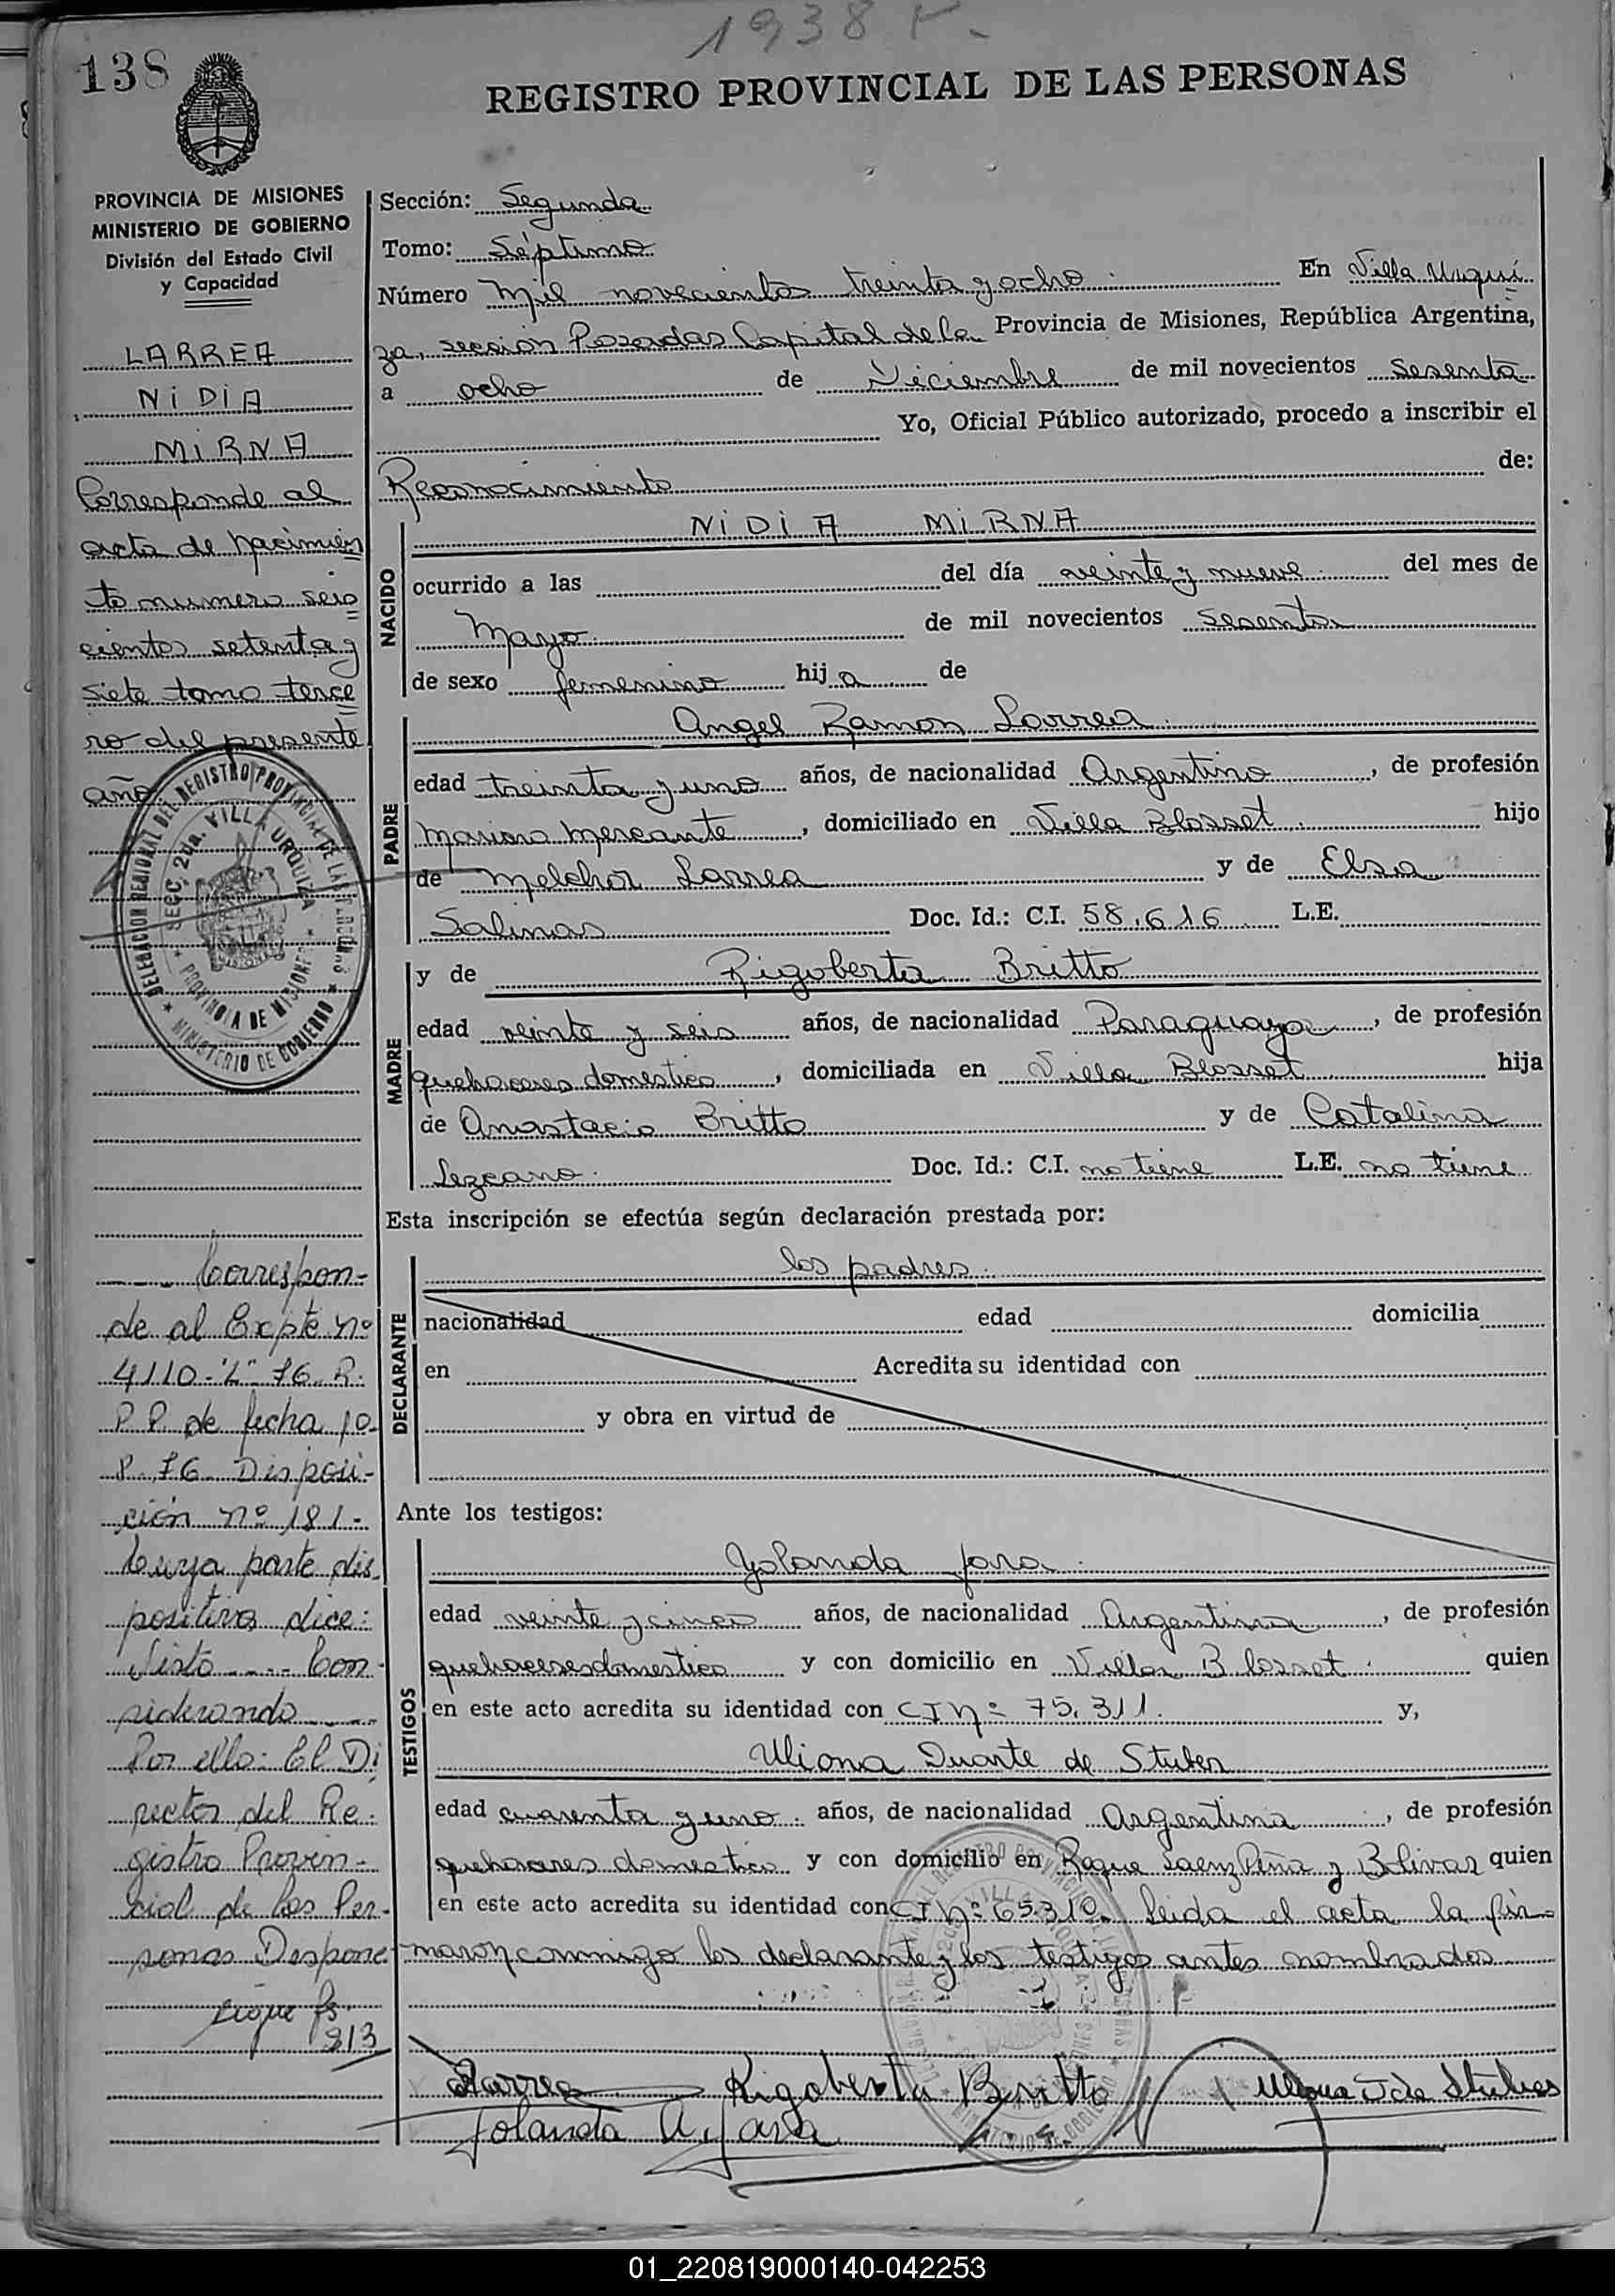 1938 r.
138
REGISTRO PROVINCIAL DE LAS PERSONAS
PROVINCIA DE MISIONES
MINISTERIO DE GOBIERNO
División del Estado Civil
y Capacidad
LARREA
NIDIA
MIRNA
Corresponde al
acta de nacimien
to numero seis
cientos setenta y
siete tomo terce
ro del presente
año
DELEGACION REGIONAL DEL REGISTRO PROVINCIAL DE LAS PERSONAS
SECC. 2da. VILLA URQUIZA
PROVINCIA DE MISIONES
MINISTERIO DE GOBIERNO
---- Correspon-
de al Expte nº
4110-"L"-76-R.
P.P. de fecha 10-
8-76 Disposi-
ción nº 181-
Cuya parte dis-
positiva dice:
Visto ---- Con-
siderando ----
Por ello: El Di
rector del Re-
gistro Provin-
cial de las Per-
sonas Dispone:
sigue fs.
313
Sección: Segunda
Tomo: Séptimo
Número Mil novecientos treinta y ocho En Villa Urquí
za, sección Posadas Capital de la Provincia de Misiones, República Argentina,
a ocho de Diciembre de mil novecientos Sesenta
Yo, Oficial Público autorizado, procedo a inscribir el
Reconocimiento de:
NACIDO
NIDIA MIRNA
ocurrido a las del día veinte y nueve del mes de
Mayo de mil novecientos Sesenta
de sexo femenino hij a de
PADRE
Angel Ramon Larrea
edad treinta y uno años, de nacionalidad Argentino, de profesión
marino mercante, domiciliado en Villa Blosset hijo
de Melchor Larrea y de Elsa
Salinas Doc. Id.: C.I. 58.616 L.E.
MADRE
y de Rigoberta Britto
edad veinte y seis años, de nacionalidad Paraguaya, de profesión
quehaceres domestico, domiciliada en Villa Blosset hija
de Anastacio Britto y de Catalina
Lezcano Doc. Id.: C.I. no tiene L.E. no tiene
Esta inscripción se efectúa según declaración prestada por:
DECLARANTE
los padres
nacionalidad edad domicilia
en Acredita su identidad con
y obra en virtud de
Ante los testigos:
TESTIGOS
Yolanda Jara
edad veinte y cinco años, de nacionalidad Argentina, de profesión
quehaceres domestico y con domicilio en Villa Blosset quien
en este acto acredita su identidad con CI Nº 75.311. y,
Uliona Duarte de Stuber
edad cuarenta y uno años, de nacionalidad Argentina, de profesión
quehaceres domestico y con domicilio en Roque Saenz Peña y Bolivar quien
en este acto acredita su identidad con CI Nº 65.310. Leida el acta la fir-
maron conmigo los declarante y los testigos antes nombrados
Larrea Rigoberta Britto
Yolanda A. Jara
01_220819000140-042253